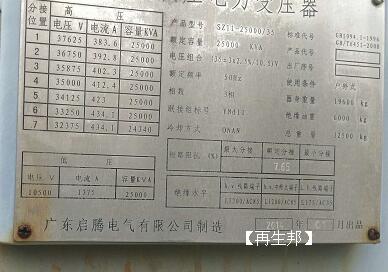 电力变压器
分接位置 高 压
电压 V 电流 A 容量KVA
1 37625 383.6 25000
2 36750 392.8 25000
3 402.4 25000
4 25000
5 34125 423 25000
6 33250 434.1 25000
7 32375 434.1 24340
低 压
电压 V 电流 A 容量KVA
10500 1375 25000
产品型号 SZ11-25000/35
额定容量 25000 KVA
电压组合
额定频率 50Hz
相数 3相
联接组标号 YNd11
冷却方式 ONAN
标准代号 GB1094.1-1996
GB/T6451-2008
产品代号
出厂序号
使用条件 户外式
器身重量 19600 kg
绝缘油重 6000 kg
总重量 kg
短路阻抗(%) 最大分接 额定分接 最小分接
7.65
绝缘水平
广东启腾电气有限公司制造
年 月出品
【再生邦】